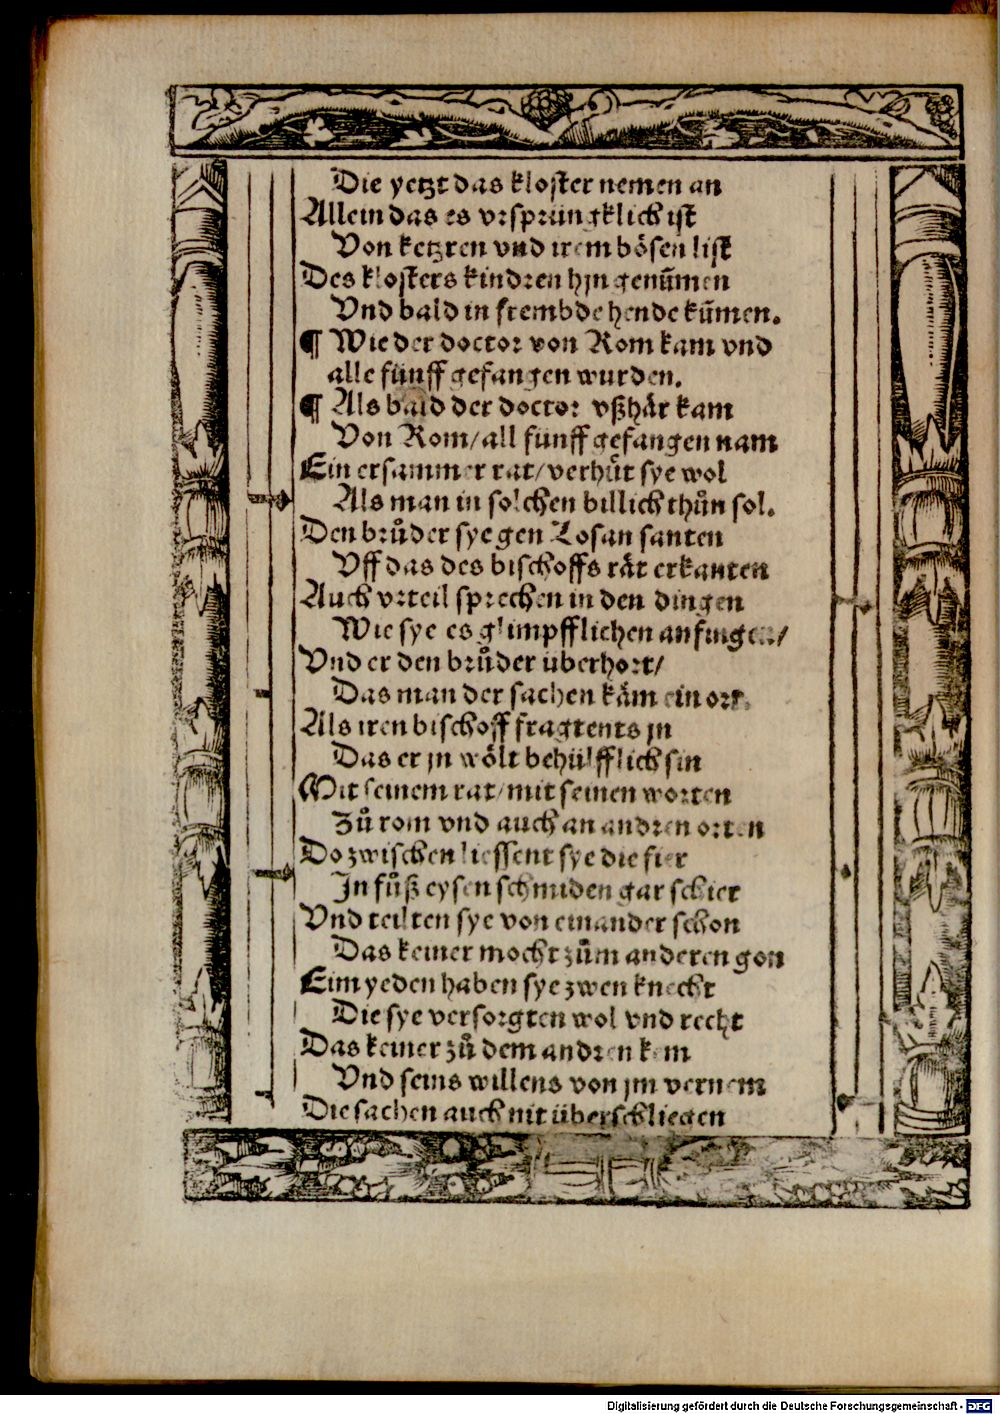 Die yetzt das kloster nemen an
Allein das es vrsprüngklich ist
Von ketzren vnd irem bösen list
Des klosters kindren hin genūmen
Vnd bald in frembde hende kūmen.
¶ Wie der doctor von Rom kam vnd
alle fünff gefangen wurden.
¶ Als bald der doctor vßhär kam
Von Rom/all fünff gefangen nam
Ein ersammer rat/verhüt sye wol
Als man in solchen billich thůn sol.
Den brůder sye gen Losan santen
Vff das des bischoffs rät erkanten
Auch vrteil sprechen in den dingen
Wie sye es glimpfflichen anfingen/
Vnd er den brůder überhort/
Das man der sachen käm ein ort.
Als iren bischoff fragtents jn
Das er jn wölt behülfflich sin
Mit seinem rat/mit seinen worten
Zů rom vnd auch an andren orten
Do zwischen liessent sye die fier
In fůß eysen schmiden gar schier
Vnd teilten sye von einander schon
Das keiner mocht zům anderen gon
Eim yeden haben sye zwen knecht
Die sye versorgten wol vnd recht
Das keiner zů dem andren kem
Vnd seins willens von jm vernem
Die sachen auch nit überschliegen
Digitalisierung gefördert durch die Deutsche Forschungsgemeinschaft - DFG